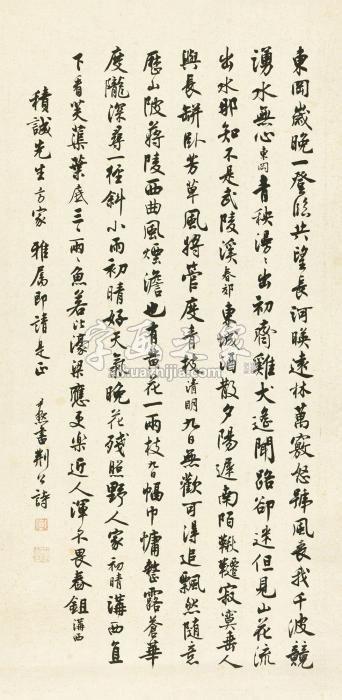 東岡歲晚一登臨共望長河映遠林萬竅怒號風喪我千波競
湧水無心東岡青秧漫〻出初齊雞犬遙聞路卻迷但見山花流
出水那知不是武陵溪春郊東城酒散夕陽遲南陌鞦韆寂寞垂人
與長缾臥芳草風將管度青枝清明九日無歡可得追飄然隨意
歷山陂蔣陵西曲風煙澹也有黃花一兩枝九日幅巾慵整露蒼華
度隴深尋一徑斜小雨初晴好天氣晚花殘照野人家初晴溝西直
下看芙蕖葉底三〻兩〻魚若比濠梁應更樂近人渾不畏舂鉏溝西
積誠先生方家 雅屬即請是正
尹默書荆公詩